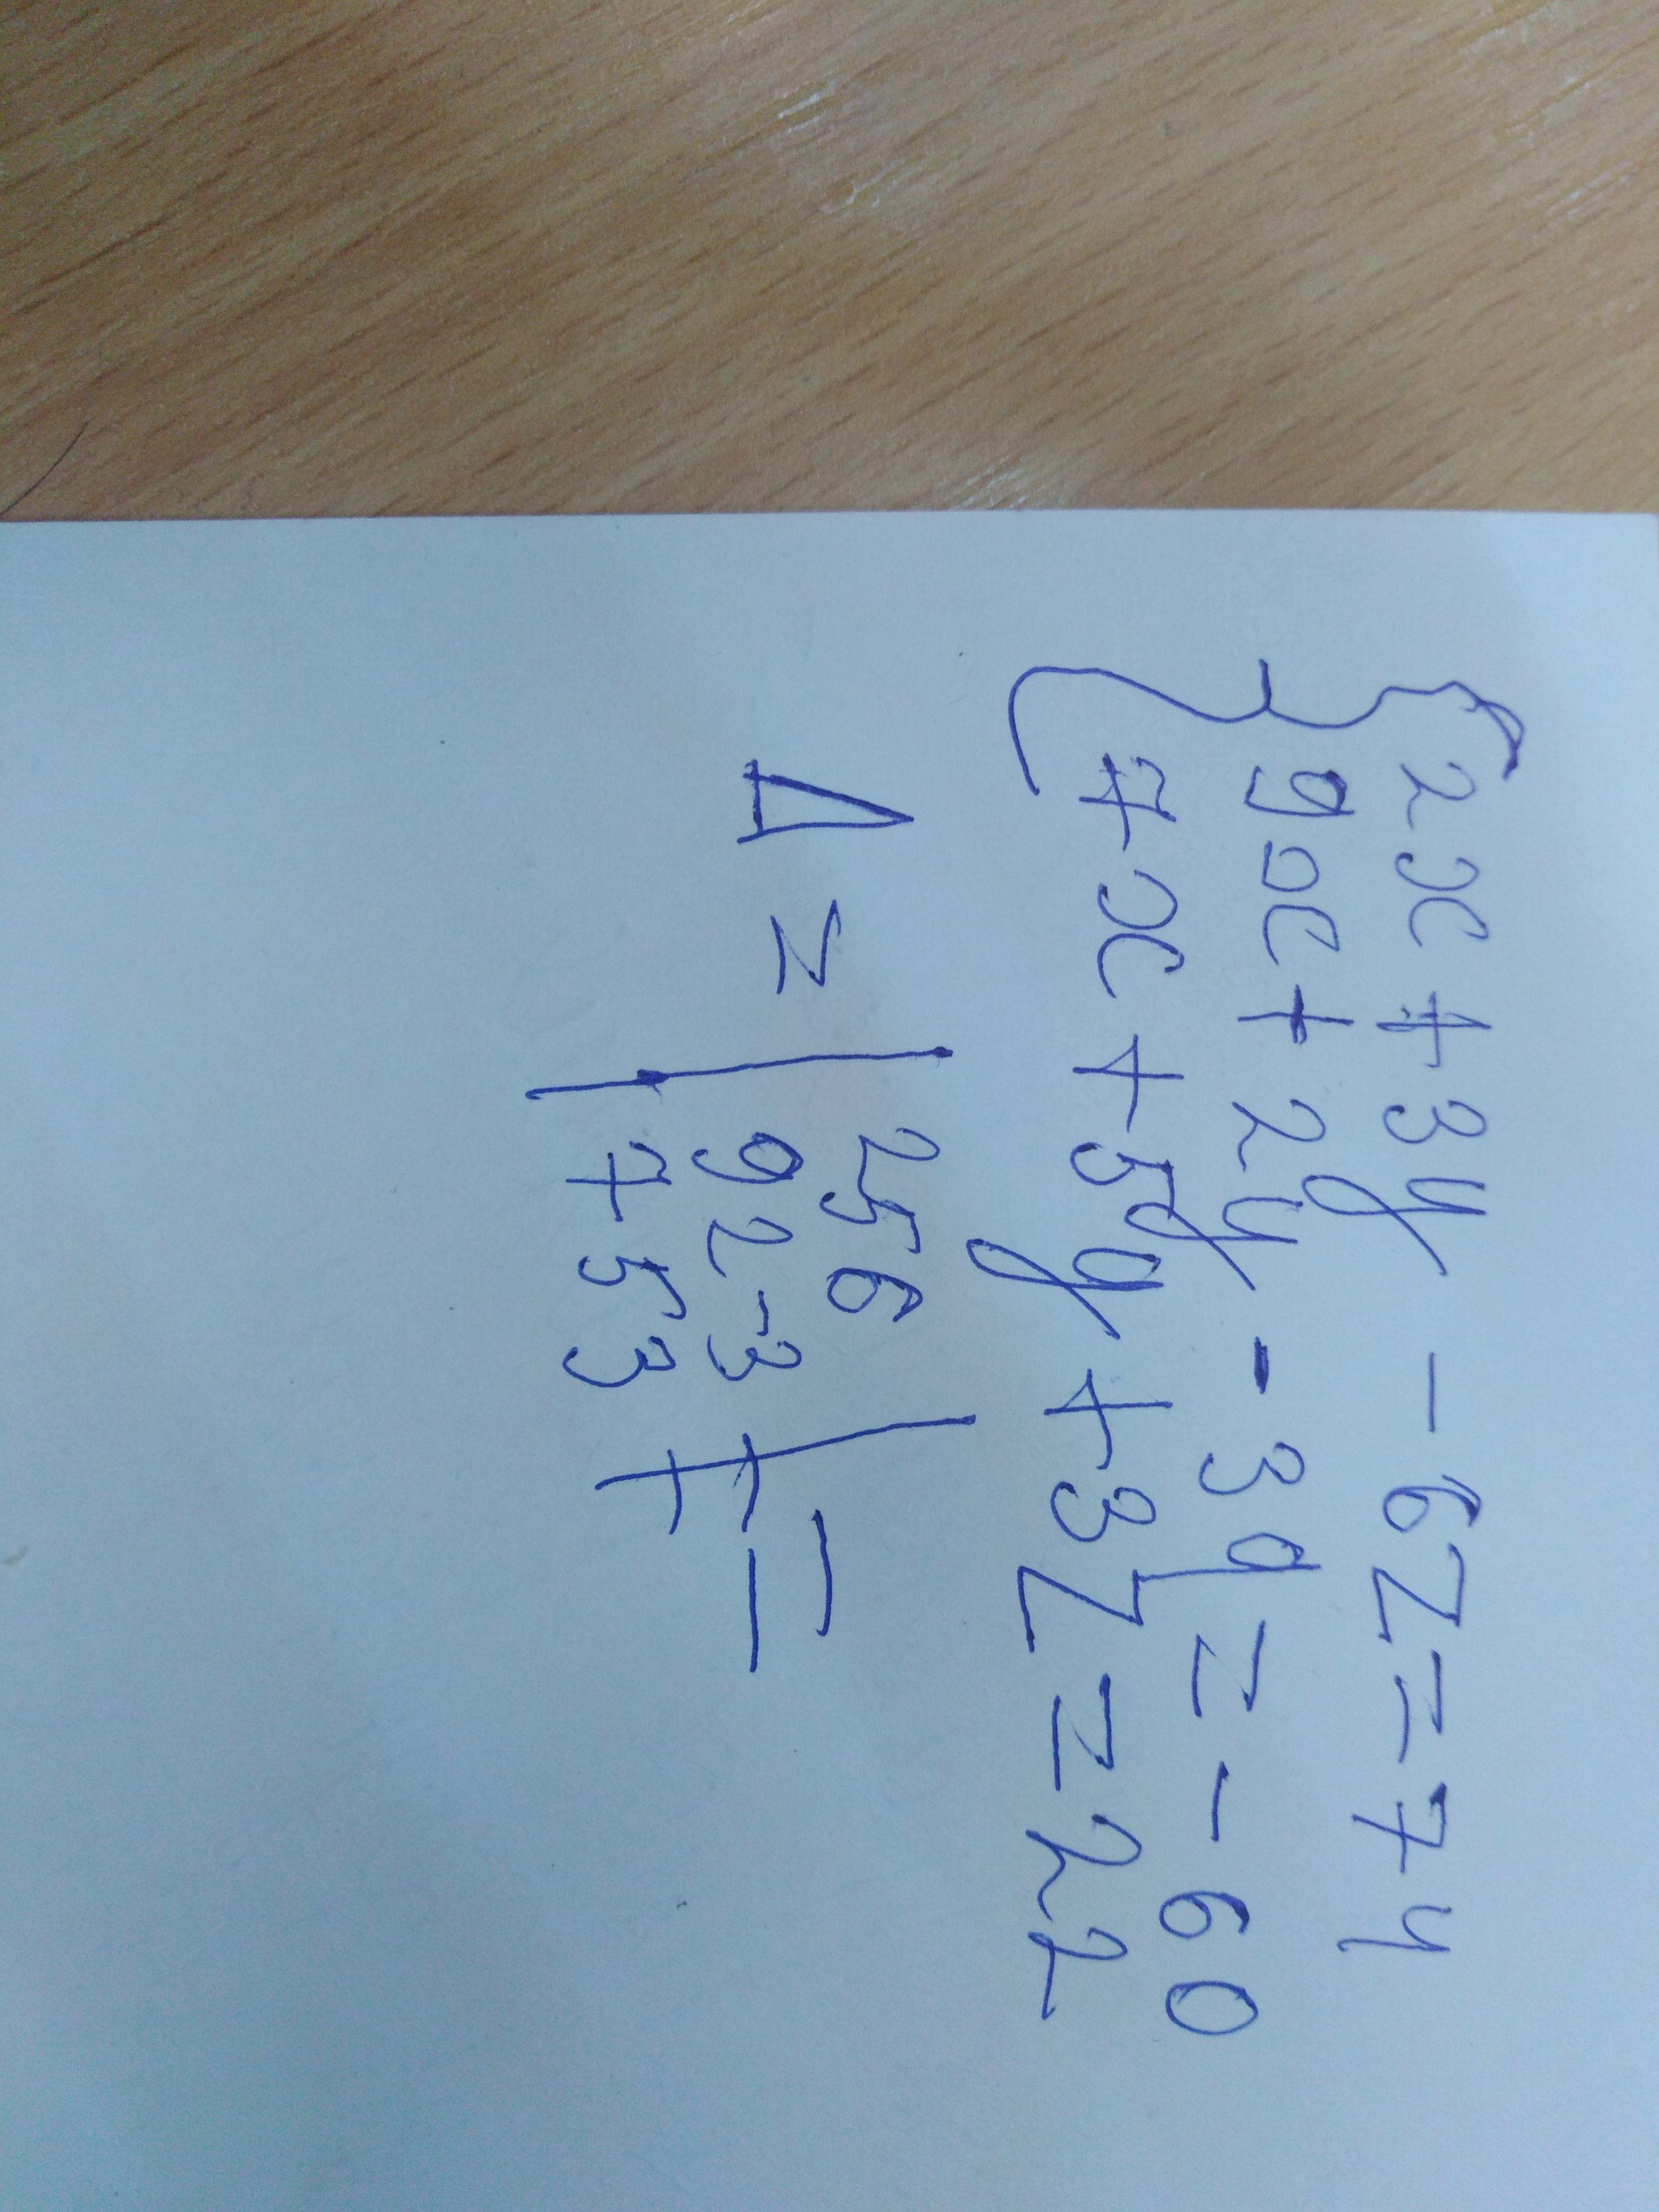 2x + 3y - 6z = 74
9x + 2y - 39 = -60
7x + 5y + 3z = 22
Δ = | 2 5 6
9 2 -3
7 5 3 | =